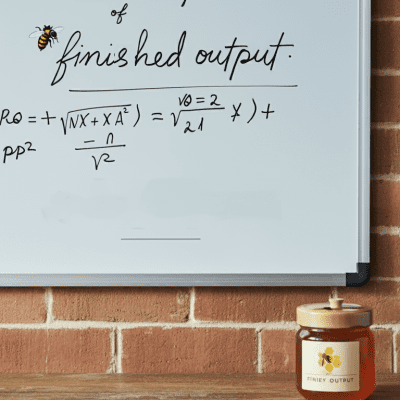 of
finished output.
Rө = + √NX + XA²) = √vө = 2 / 21 x) +
pp² - n / √2
OUTPUT